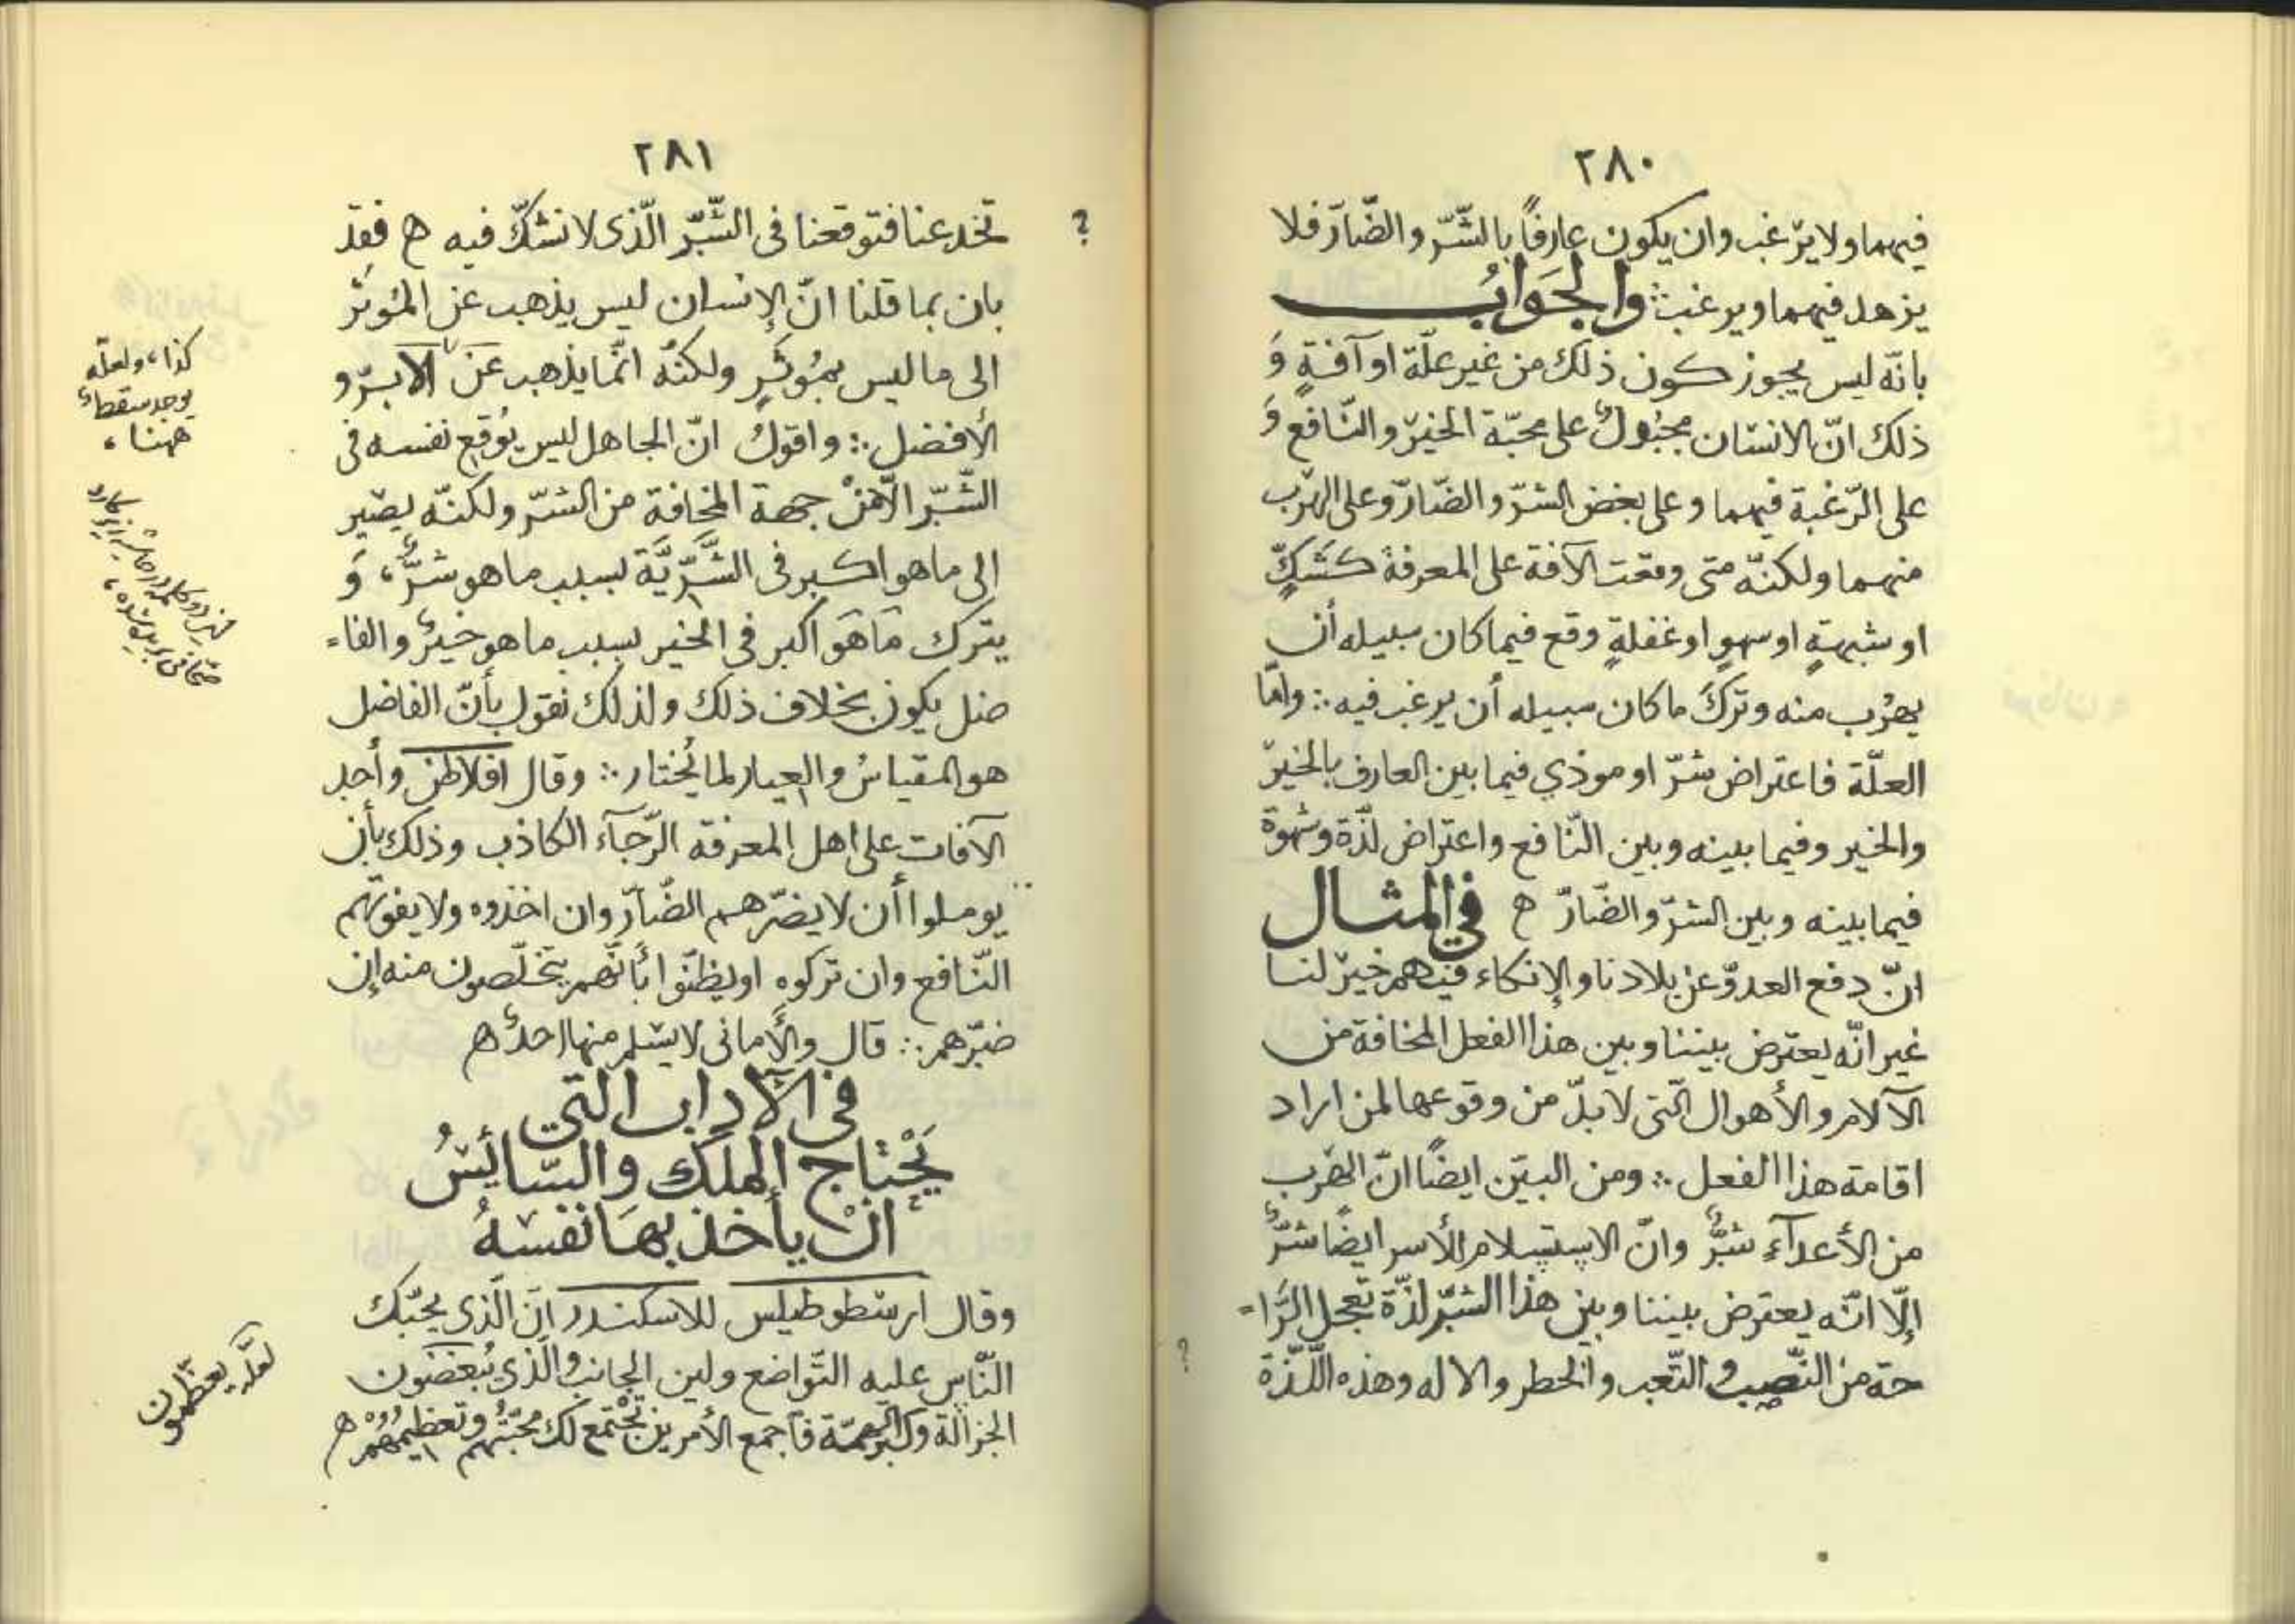 ٢٨٠
فيهما ولا يرغب وان يكون عارفاً بالشّرّ والضّارّ فلا
يزهد فيهما ويرغب ∴ والجَوابُ
بانّه ليس يجوز كون ذلك من غير علّة او آفةٍ وَ
ذلك انّ الانسان مجبُولٌ على محبّة الخيرّ والنّافع وَ
على الرّغبة فيهما وعلى بغض الشرّ والضّارّ وعلى الهرَب
منهما ولكنّه متى وقعت الآفة على المعرفة كشكٍّ
او شبهةٍ او سهوٍ او غفلةٍ وقع فيما كان سبيله أن
يهرُب منه وتركَ ما كان سبيله أن يرغب فيه ∴ وامّا
العلّة فاعتراض شرّ او موذي فيما بين العارف بالخيرّ
والخير وفيما بينه وبين النّافع واعتراض لذّة وشهوة
فيما بينه وبين الشرّ والضّارّ ه في المثال
انّ دفع العدوّ عن بلادنا والإنكاء فيهم خيرّ لنا
غير انّه يعترض بيننا وبين هذا الفعل المخافة من
الآلام والأهوال الّتى لا بدّ من وقوعها لمن اراد
اقامة هذا الفعل ∴ ومن البيّن ايضاً انّ الهرَب
من الأعدآءِ شرٌّ وانّ الاستسلام للأسر ايضًا شرٌّ
إلّا انّه يعترض بيننا وبين هذا الشرّ لذّة تعجل الرّا=
حة من النّصب والتّعب والخطر والاله وهذه اللّذّة
٢٨١
؟
تخدعنا فتوقعنا فى الشّرّ الّذى لا نشكّ فيه ه فقد
بان بما قلنا انّ الإنسان ليس يذهب عن المؤثر
الى ما ليس بمُوثَرٍ ولكنّه انّما يذهب عن الآبرّ و
الأفضل ∴ واقولُ انّ الجاهل ليس يُوقع نفسه فى
الشّرّ الّا منْ جهة المخافة من الشرّ ولكنّه يصير
إلى ما هو اكبر فى الشَّرّيَّة بسبب ما هو شرٌّ، وَ
يترك مَا هَو اكبر فى الخير بسبب ما هو خيرٌ والفا=
ضل يكون بخلاف ذلك ولذلك نقول بأنّ الفاضل
هو المقياسُ والعيار لما يُختار ∴ وقال افلاطن وأحد
الآفات على اهل المعرفة الرّجآء الكاذب وذلك بأن
يوملوا أن لا يضرّهم الضّآرّ وان اخذوه ولا يفوتهم
النّافع وان تركوه او يظنّوا بأنّهم يتخلّصون منه إن
ضرّهم ∴ قال والأمانى لا يسلم منها احدٌ ه
فى الآداب التى
يَحْتاج الملك والسّائسُ
انْ يأخذ بهَا نفسَهُ
وقال ارسطوطيلس للاسكندر انّ الّذى يحبّك
النّاس عليه التّواضع ولين الجانب والّذى يُبغضون
الجزالة وكبر الهمّة فاجمع الأمرين تجْتمع لك محبّتُهم وتعظيمُهُم ه
كذا، ولعلّه
يوجد سقطاء
ههنا،
لعلّه يعظمون